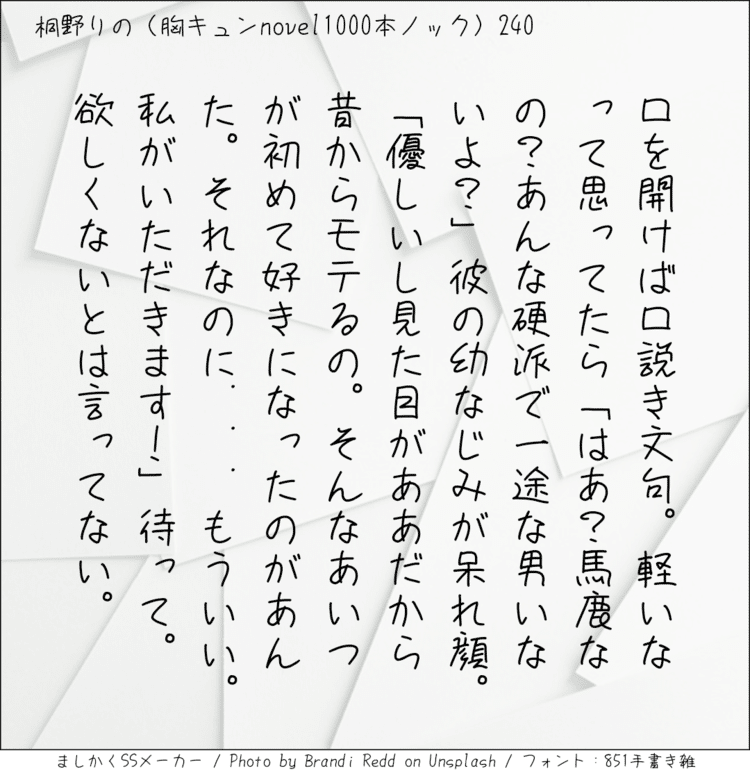 桐野りの（胸キュンnovel1000本ノック）240
口を開けば口説き文句。　軽いな
って思ってたら「はあ？馬鹿な
の？あんな硬派で一途な男いな
いよ？」彼の幼なじみが呆れ顔。
「優しいし見た目がああだから
昔からモテるの。そんなあいつ
が初めて好きになったのがあん
た。それなのに...　もういい。
私がいただきます！」待って。
欲しくないとは言ってない。
ましかくSSメーカー / Photo by Brandi Redd on Unsplash / フォント：851手書き雑